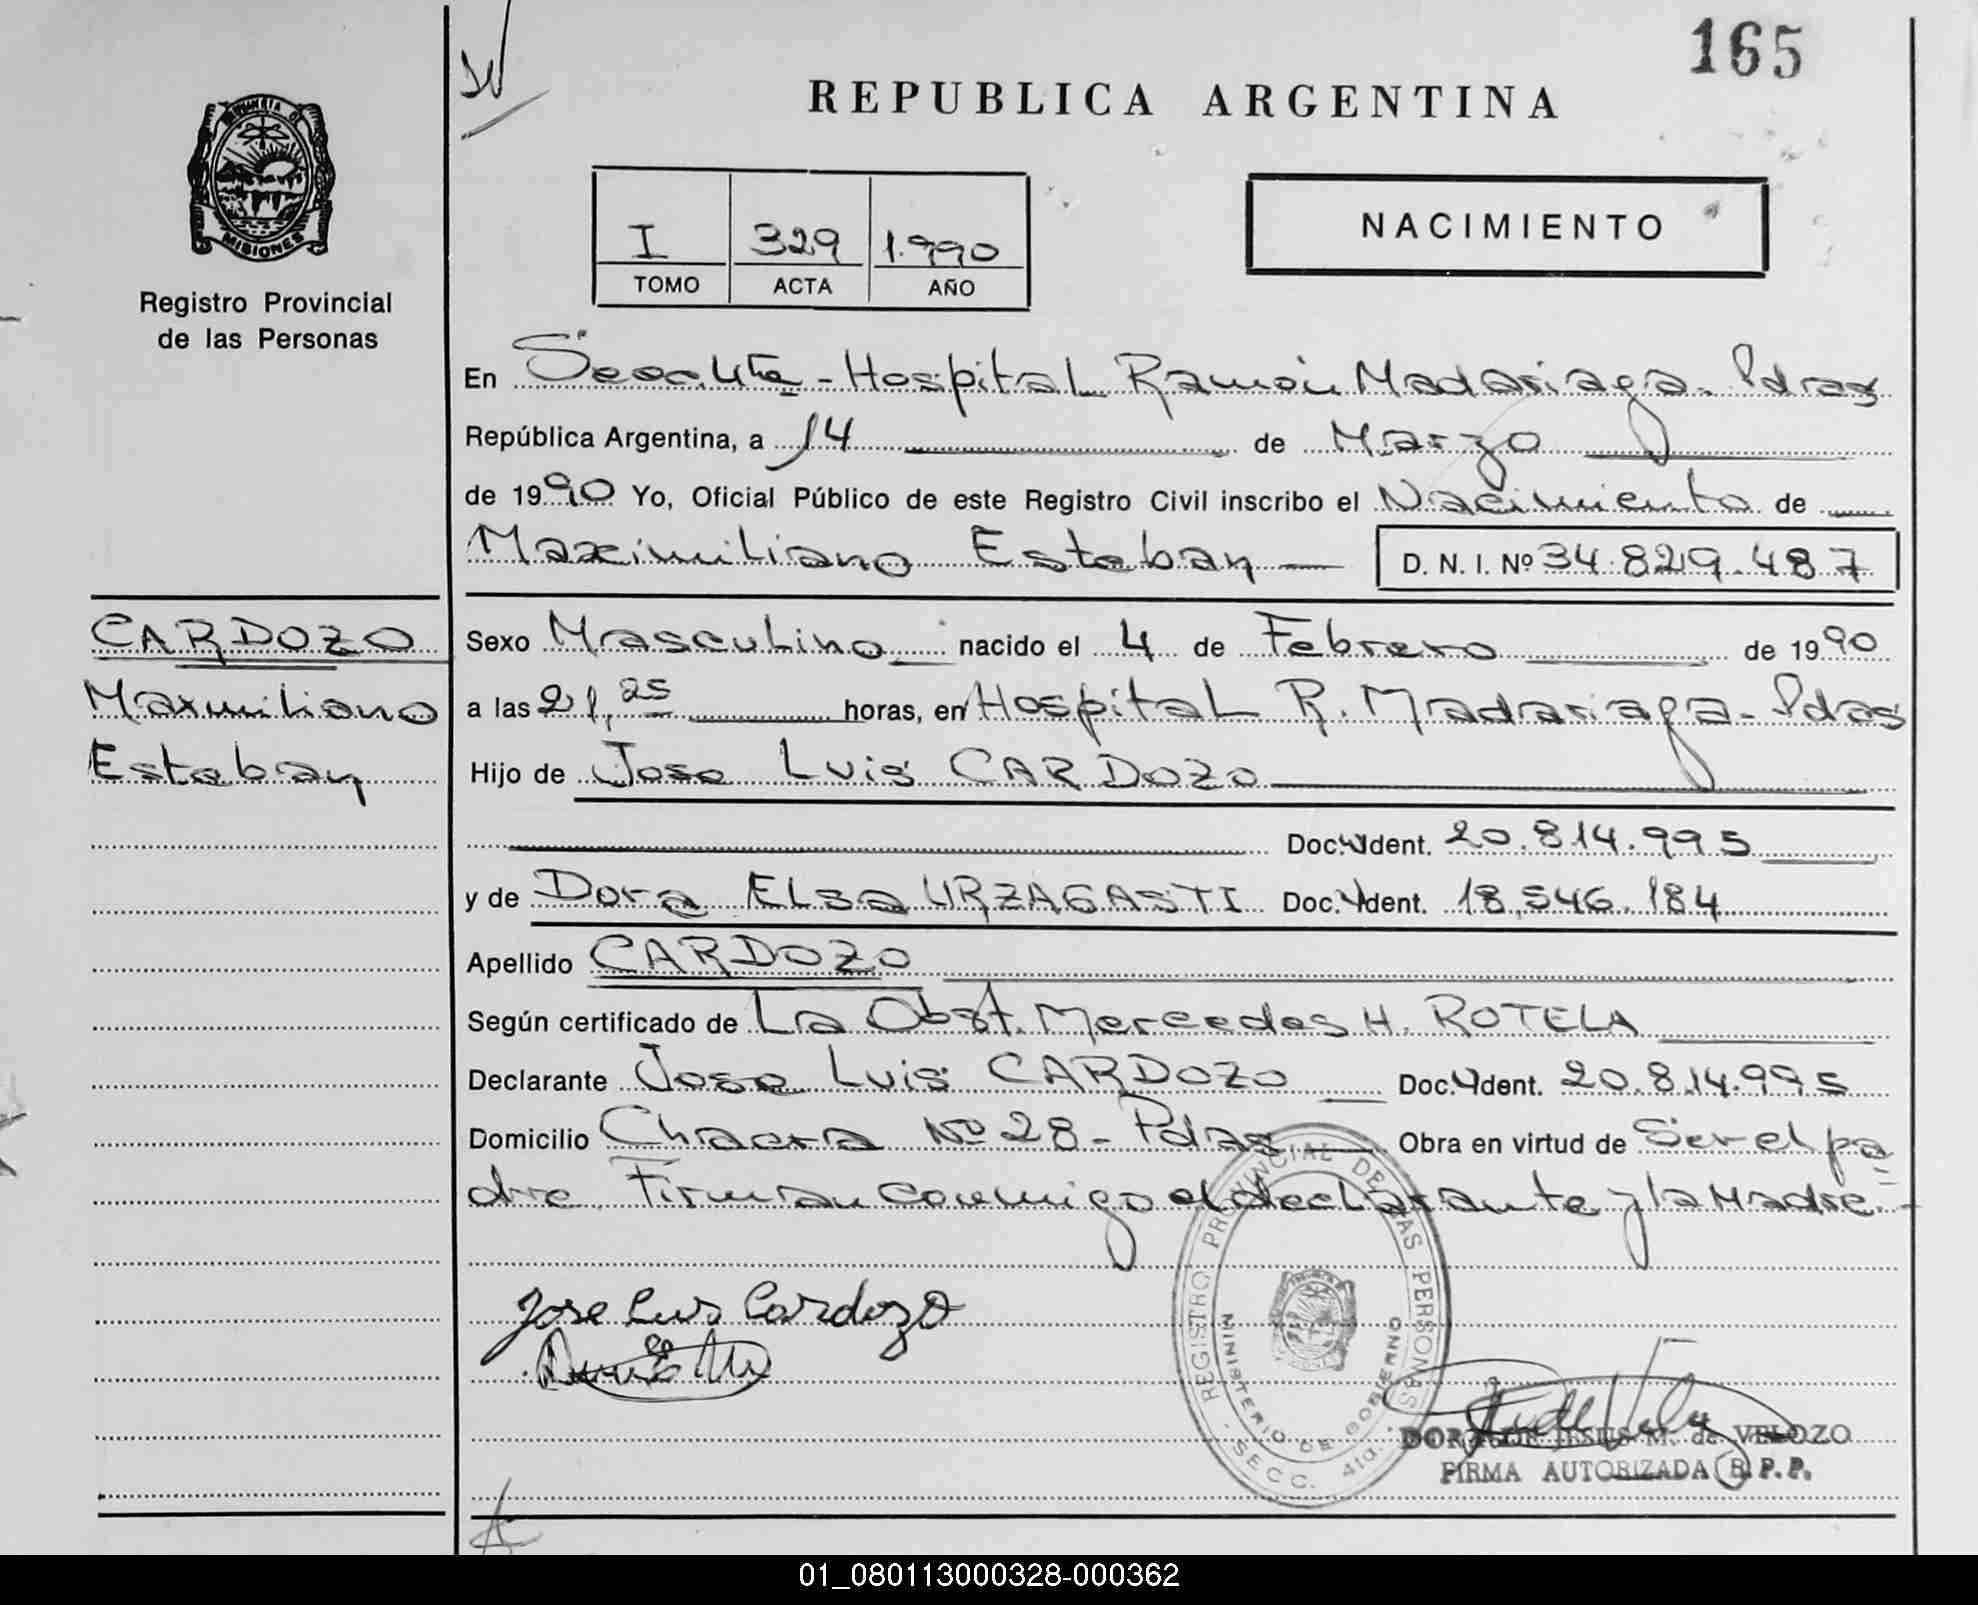 165
REPUBLICA ARGENTINA
PROVINCIA DE
MISIONES
Registro Provincial
de las Personas
I 329 1.990
TOMO ACTA AÑO
NACIMIENTO
En Secc. 4ta - Hospital Ramón Madariaga - Pdas
República Argentina, a 14 de Marzo
de 1990 Yo, Oficial Público de este Registro Civil inscribo el Nacimiento de
Maximiliano Esteban D. N. I. Nº 34.829.487
CARDOZO
Maxmiliano
Esteban
Sexo Masculino nacido el 4 de Febrero de 1990
a las 21,25 horas, en Hospital R. Madariaga - Pdas
Hijo de Jose Luis CARDOZO
Doc. Ident. 20.814.995
y de Dora ELsa URZAGASTI Doc. Ident. 18.546.184
Apellido CARDOZO
Según certificado de La Obst. Mercedes H. ROTELA
Declarante Jose Luis CARDOZO Doc. Ident. 20.814.995
Domicilio Chacra Nº 28 - Pdas Obra en virtud de Ser el pa
dre Firman conmigo el declarante y la Madre.-
Jose Luis Cardozo
REGISTRO PROVINCIAL DE LAS PERSONAS
MINISTERIO DE GOBIERNO
SECC. 4ta.
DORA DE JESUS M. de VELOZO
FIRMA AUTORIZADA R. P. P.
01_080113000328-000362